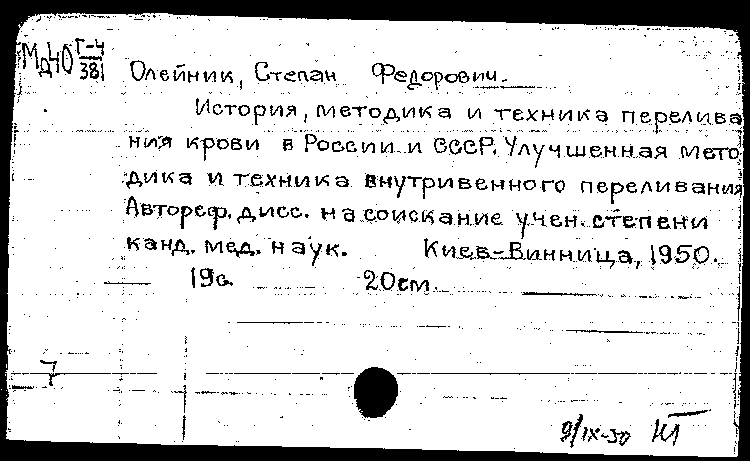 Мд40 Г-4
381
Олейник, Степан Федорович.
История, методика и техника перелива
ния крови в России и СССР. Улучшенная мето
дика и техника внутривенного переливания
Автореф. дисс. на соискание учен. степени
канд. мед. наук. Киев-Винница, 1950.
19с. 20см.
7
9/IX-50